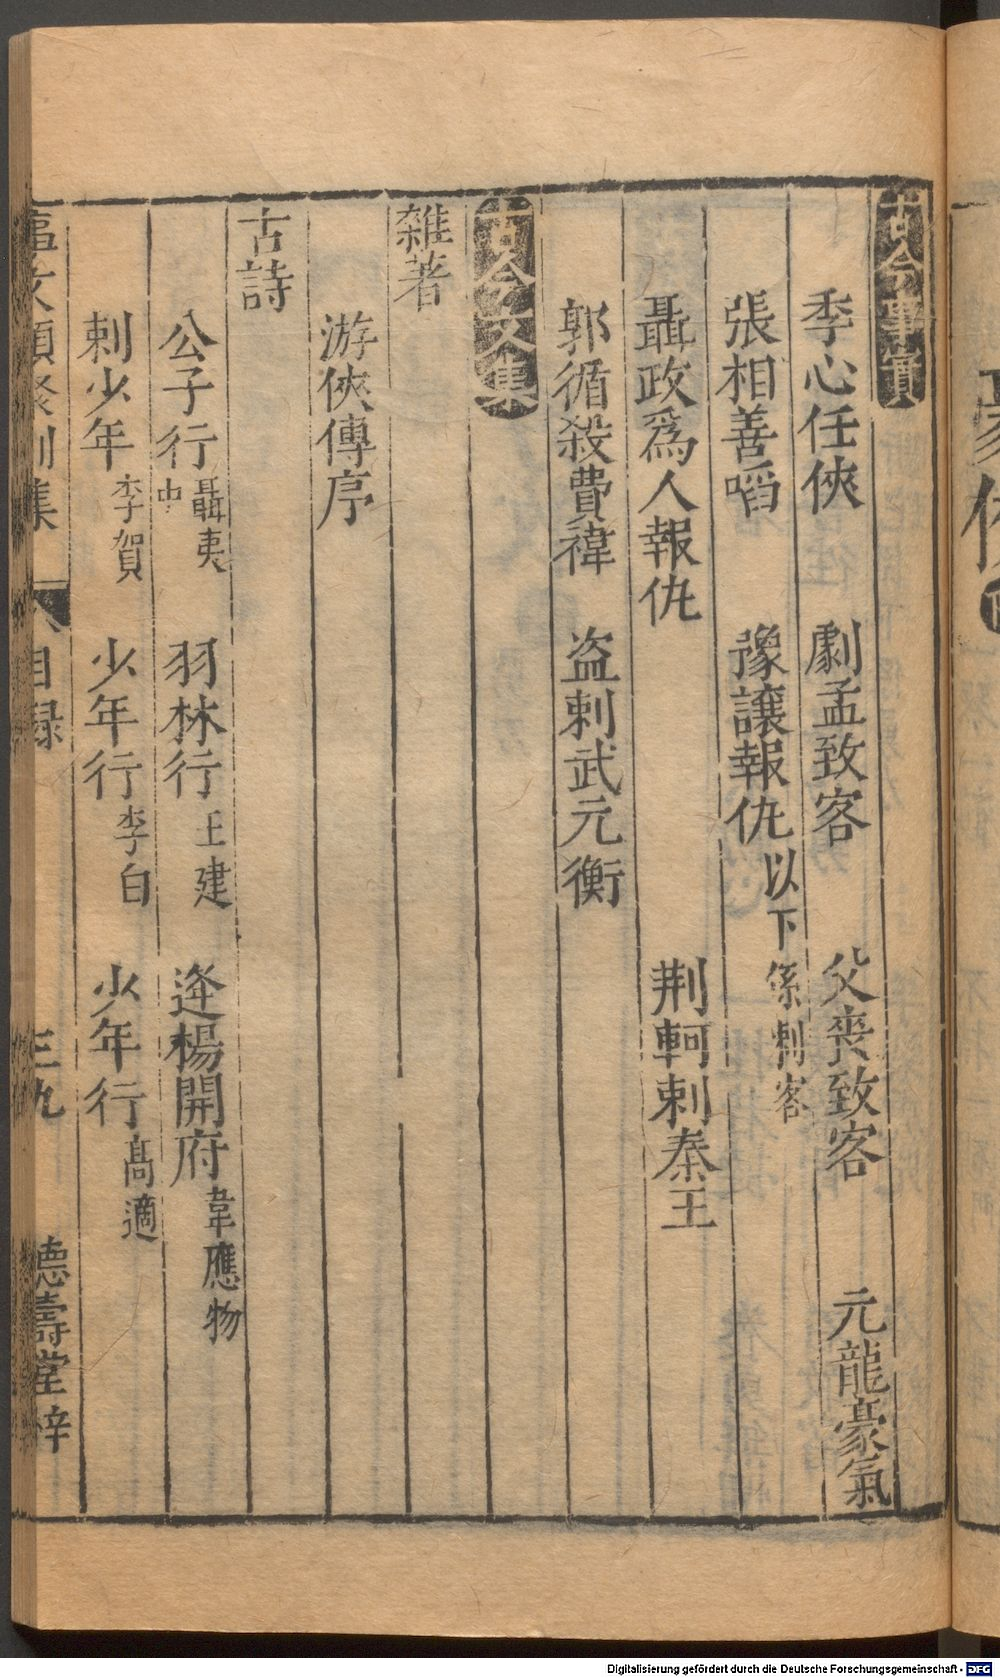 古今事實
季心任俠　劇孟致客　父喪致客　元龍豪氣
張相善㗖　豫讓報仇以下係刺客
聶政爲人報仇　荆軻刺秦王
郭循殺費禕　盗刺武元衡
古今文集
雜著
游俠傳序
古詩
公子行聶夷中　羽林行王建　逢楊開府韋應物
刺少年李賀　少年行李白　少年行高適
文類聚别集　目録　三九　德壽堂梓
Digitalisierung gefördert durch die Deutsche Forschungsgemeinschaft - DFG